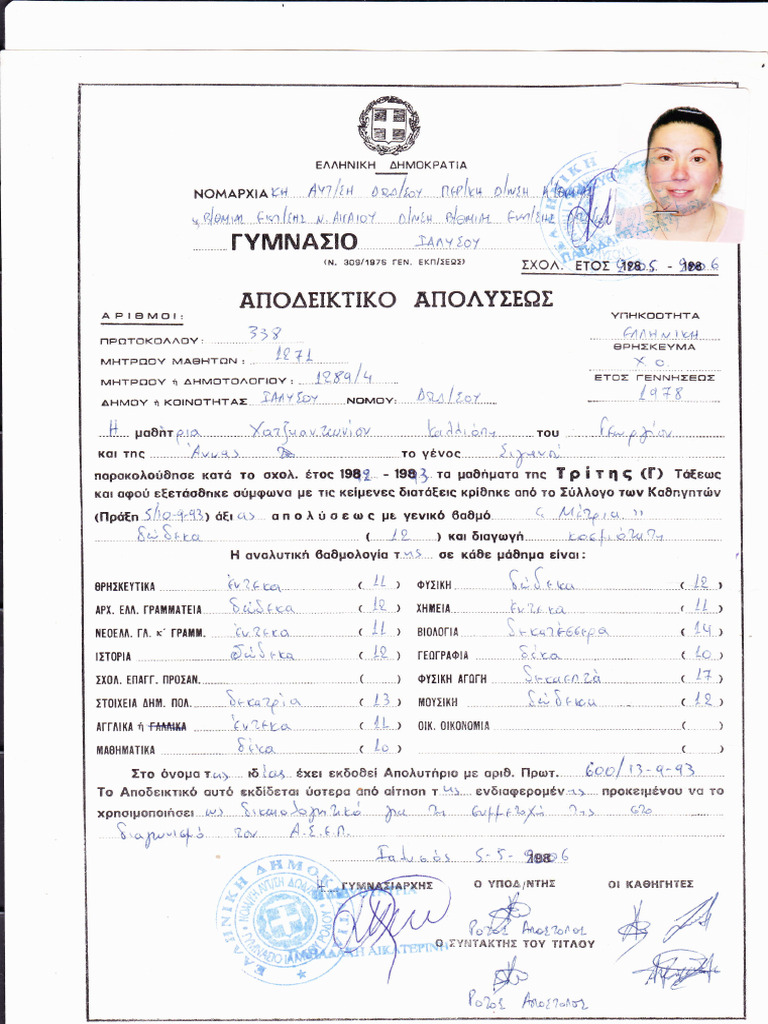 ΕΛΛΗΝΙΚΗ ΔΗΜΟΚΡΑΤΙΑ
ΝΟΜΑΡΧΙΑΚΗ ΑΥΤ/ΣΗ ΔΩΔ/ΣΟΥ ΠΕΡ/ΚΗ Δ/ΝΣΗ
ΕΚΠ/ΣΗΣ Ν. ΑΙΓΑΙΟΥ Δ/ΝΣΗ Β/ΘΜΙΑΣ ΕΚΠ/ΣΗΣ
ΓΥΜΝΑΣΙΟ ΙΑΛΥΣΟΥ
(Ν. 309/1976 ΓΕΝ. ΕΚΠ/ΣΕΩΣ)
ΣΧΟΛ. ΕΤΟΣ 2005 - 2006
ΑΠΟΔΕΙΚΤΙΚΟ ΑΠΟΛΥΣΕΩΣ
ΑΡΙΘΜΟΙ:
ΠΡΩΤΟΚΟΛΛΟΥ: 338
ΜΗΤΡΩΟΥ ΜΑΘΗΤΩΝ: 1271
ΜΗΤΡΩΟΥ ή ΔΗΜΟΤΟΛΟΓΙΟΥ: 1289/4
ΔΗΜΟΥ ή ΚΟΙΝΟΤΗΤΑΣ ΙΑΛΥΣΟΥ ΝΟΜΟΥ: ΔΩΔ/ΣΟΥ
ΥΠΗΚΟΟΤΗΤΑ
ΕΛΛΗΝΙΚΗ
ΘΡΗΣΚΕΥΜΑ
Χ.Ο.
ΕΤΟΣ ΓΕΝΝΗΣΕΩΣ
1978
Η μαθήτρια Χατζηαντωνίου Καλλιόπη του Γεωργίου
και της Άννας το γένος
παρακολούθησε κατά το σχολ. έτος 1992 - 1993 τα μαθήματα της Τρίτης (Γ) Τάξεως
και αφού εξετάσθηκε σύμφωνα με τις κείμενες διατάξεις κρίθηκε από το Σύλλογο των Καθηγητών
(Πράξη 5/10-9-93) άξια απολύσεως με γενικό βαθμό "Μέτρια"
δώδεκα (12) και διαγωγή κοσμιότατη
Η αναλυτική βαθμολογία της σε κάθε μάθημα είναι:
ΘΡΗΣΚΕΥΤΙΚΑ έντεκα (11)
ΑΡΧ. ΕΛΛ. ΓΡΑΜΜΑΤΕΙΑ δώδεκα (12)
ΝΕΟΕΛΛ. ΓΛ. κ' ΓΡΑΜΜ. έντεκα (11)
ΙΣΤΟΡΙΑ δώδεκα (12)
ΣΧΟΛ. ΕΠΑΓΓ. ΠΡΟΣΑΝ. ( )
ΣΤΟΙΧΕΙΑ ΔΗΜ. ΠΟΛ. δεκατρία (13)
ΑΓΓΛΙΚΑ ή ΓΑΛΛΙΚΑ έντεκα (11)
ΜΑΘΗΜΑΤΙΚΑ δέκα (10)
ΦΥΣΙΚΗ δώδεκα (12)
ΧΗΜΕΙΑ έντεκα (11)
ΒΙΟΛΟΓΙΑ δεκατέσσερα (14)
ΓΕΩΓΡΑΦΙΑ δέκα (10)
ΦΥΣΙΚΗ ΑΓΩΓΗ δεκαεπτά (17)
ΜΟΥΣΙΚΗ δώδεκα (12)
ΟΙΚ. ΟΙΚΟΝΟΜΙΑ ( )
( )
Στο όνομα της ιδίας έχει εκδοθεί Απολυτήριο με αριθ. Πρωτ. 600/13-9-93
Το Αποδεικτικό αυτό εκδίδεται ύστερα από αίτηση της ενδιαφερομένης προκειμένου να το
χρησιμοποιήσει ως δικαιολογητικό για τη συμμετοχή της στο
διαγωνισμό του Α.Σ.Ε.Π.
Ιαλυσός 5-5-2006
Η ΓΥΜΝΑΣΙΑΡΧΗΣ
Ο ΥΠΟΔ/ΝΤΗΣ
ΟΙ ΚΑΘΗΓΗΤΕΣ
ΡΟΤΟΣ ΑΠΟΣΤΟΛΟΣ
Ο ΣΥΝΤΑΚΤΗΣ ΤΟΥ ΤΙΤΛΟΥ
ΡΟΤΟΣ ΑΠΟΣΤΟΛΟΣ